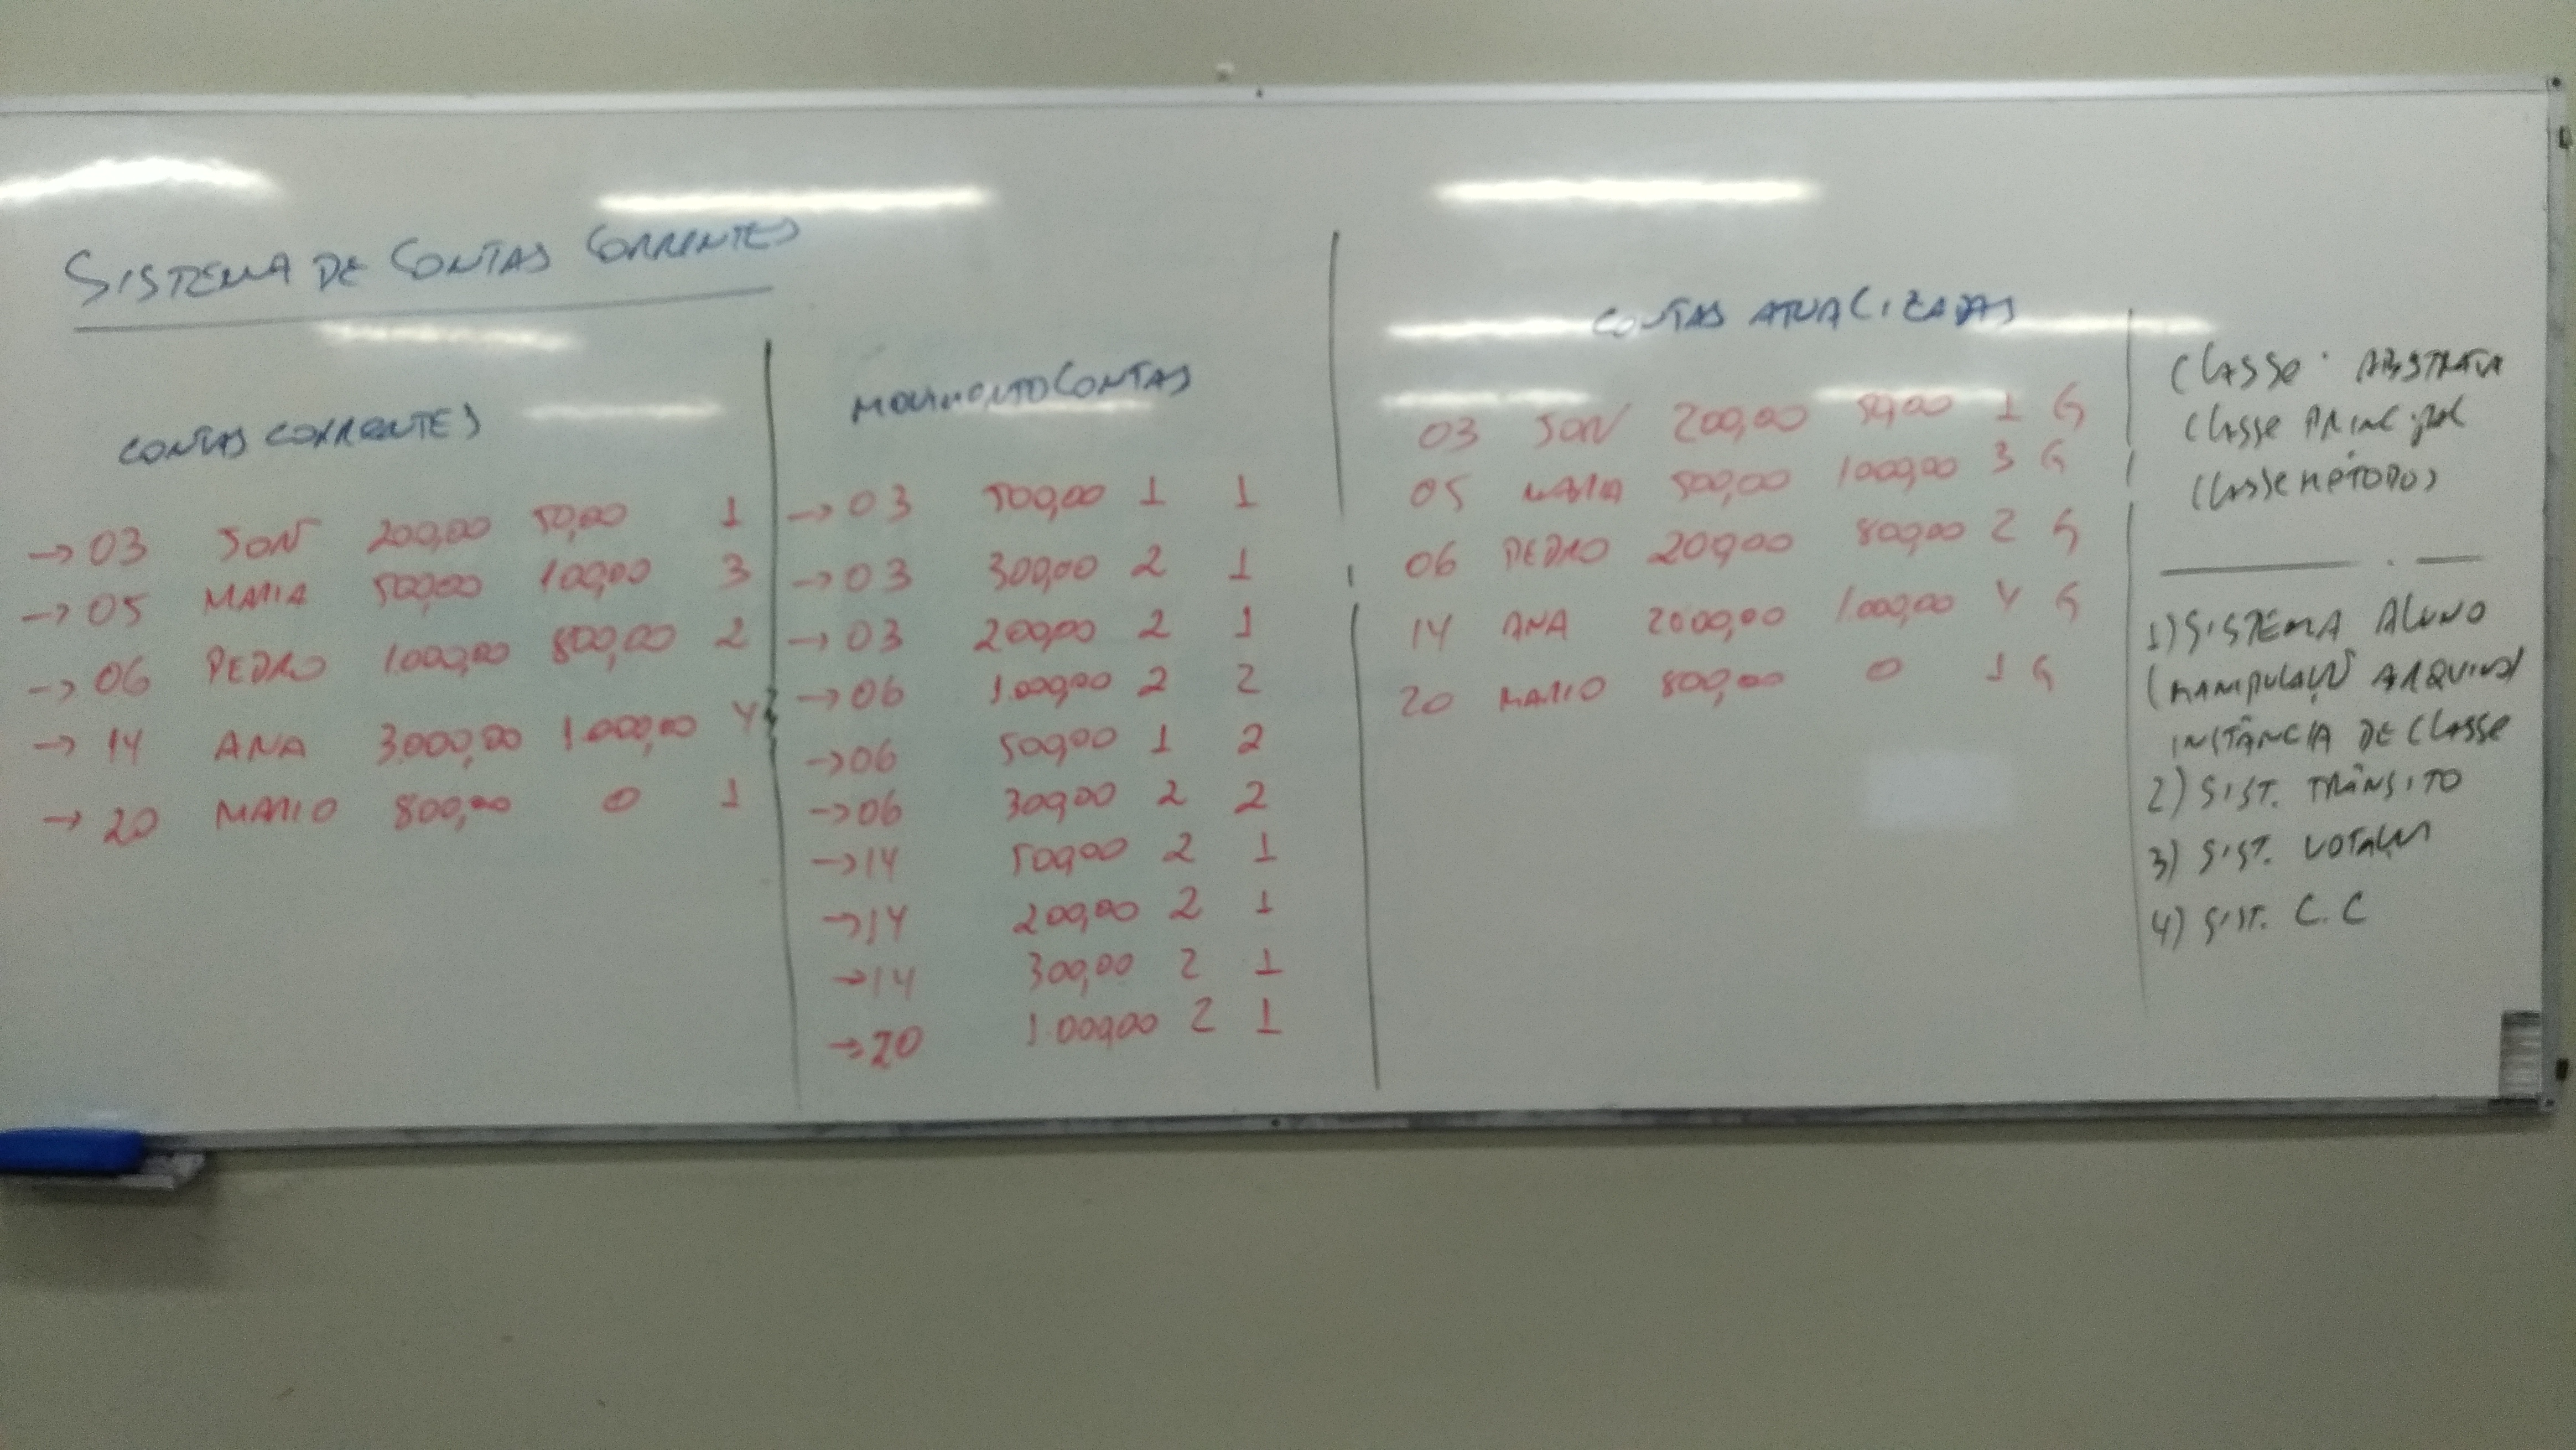 SISTEMA DE CONTAS CORRENTES
CONTAS CORRENTES
→ 03 JON 200,00 50,00 1
→ 05 MARIA 500,00 100,00 3
→ 06 PEDRO 1.000,00 800,00 2
→ 14 ANA 3.000,00 1.000,00 4
→ 20 MARIO 800,00 0 1
MOVIMENTO CONTAS
→ 03 500,00 1 1
→ 03 300,00 2 1
→ 03 200,00 2 1
→ 06 1.000,00 2 2
→ 06 500,00 1 2
→ 06 300,00 2 2
→ 14 500,00 2 1
→ 14 200,00 2 1
→ 14 300,00 2 1
→ 20 1.000,00 2 1
CONTAS ATUALIZADAS
03 JON 200,00 50,00 1 G
05 MARIA 500,00 1000,00 3 G
06 PEDRO 200,00 800,00 2 G
14 ANA 2000,00 1.000,00 4 G
20 MARIO 800,00 0 1 G
CLASSE ABSTRATA
CLASSE PRINCIPAL
CLASSE MÉTODOS
1) SISTEMA ALUNO
(MANIPULAÇÃO ARQUIVO
INSTÂNCIA DE CLASSE
2) SIST. TRÂNSITO
3) SIST. VOTAÇÃO
4) SIST. C.C